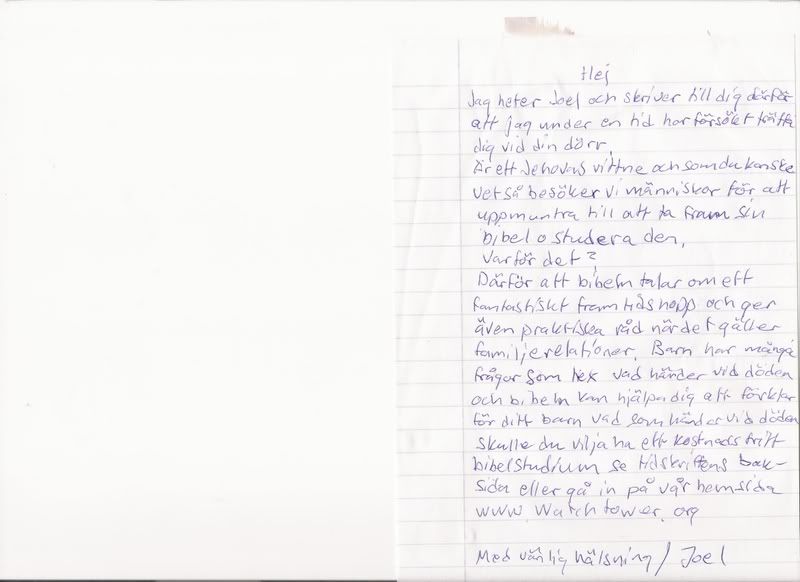 Hej
Jag heter Joel och skriver till dig därför
att jag under en tid har försökt träffa
dig vid din dörr.
Är ett Jehovas vittne och som du kanske
vet så besöker vi människor för att
uppmuntra till att ta fram sin
bibel o studera den.
Varför det?
Därför att bibeln talar om ett
fantastiskt framtidshopp och ger
även praktiska råd när det gäller
familjerelationer. Barn har många
frågor som tex vad händer vid döden
och bibeln kan hjälpa dig att förklar
för ditt barn vad som händer vid döden
Skulle du vilja ha ett kostnadsfritt
bibelstudium se tidskriftens bak-
sida eller gå in på vår hemsida
www Watchtower.org
Med vänlig hälsning / Joel